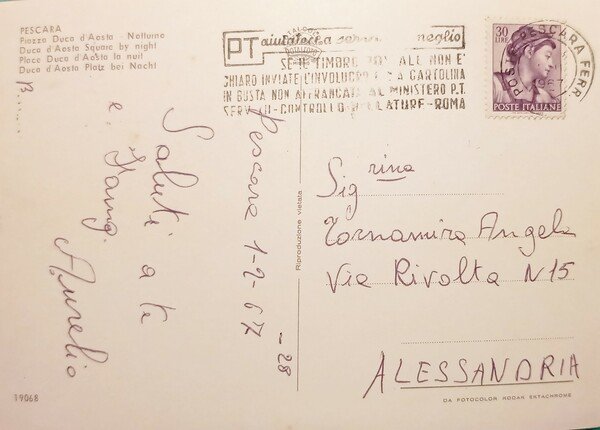 PESCARA
Piazza Duca d'Aosta - Notturno
Duca d'Aosta Square by night
Place Duca d'Aosta la nuit
Duca d'Aosta Platz bei Nacht
PT aiutateci a servirvi meglio
SE IL TIMBRO POSTALE NON È
CHIARO INVIATE L'INVOLUCRO O LA CARTOLINA
IN BUSTA NON AFFRANCATA AL MINISTERO P.T.
CONTROLLO BOLLATURE - ROMA
30 LIRE
POSTE ITALIANE
PESCARA FERR
Pescara 1-2-67
Saluti a te
e Famg.
Aurelio
-28
Riproduzione vietata
Sig rina
Tornamira Angela
Via Rivolta N 15
ALESSANDRIA
19068
DA FOTOCOLOR KODAK EKTACHROME